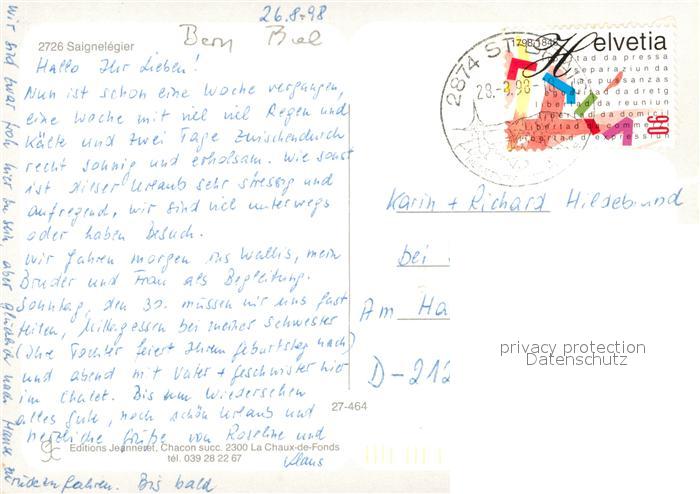 26.8.98
Bern Biel
2726 Saignelégier
Hallo Ihr Lieben!
Nun ist schon eine Woche vergangen,
eine Woche mit viel viel Regen und
Kälte und zwei Tage zwischendurch
recht sonnig und erholsam. Wie sonst
ist dieser Urlaub sehr stressig und
aufregend, wir sind viel unterwegs
oder haben Besuch.
Wir fahren morgen ins Wallis, mein
Bruder und Frau als Begleitung.
Sonntag, den 30. müssen wir uns fast
teilen, Mittagessen bei meiner Schwester
(Ihre Tochter feiert Ihren Geburtstag nach)
und abend mit Vater + Geschwister hier
im Chalet. Bis zum Wiedersehen
alles Gute, noch schön Urlaub und
herzliche Grüße von Roseline und
Klaus
Wir sind zwar froh hier zu sein, aber glücklich nach Hause
zurückzufahren. Bis bald
Editions Jeanneret, Chacon succ. 2300 La Chaux-de-Fonds
tél. 039 28 22 67
27-464
2874 ST.
28.-8.98
1798/1848
Helvetia
90
libertad da pressa
separaziun da
las pussanzas
egualitad da dretg
libertad da reuniun
libertad da domicil
libertad da commerzi
libertad d'expressiun
Karin + Richard Hildebrand
bei
Am Ha
D-212
privacy protection
Datenschutz